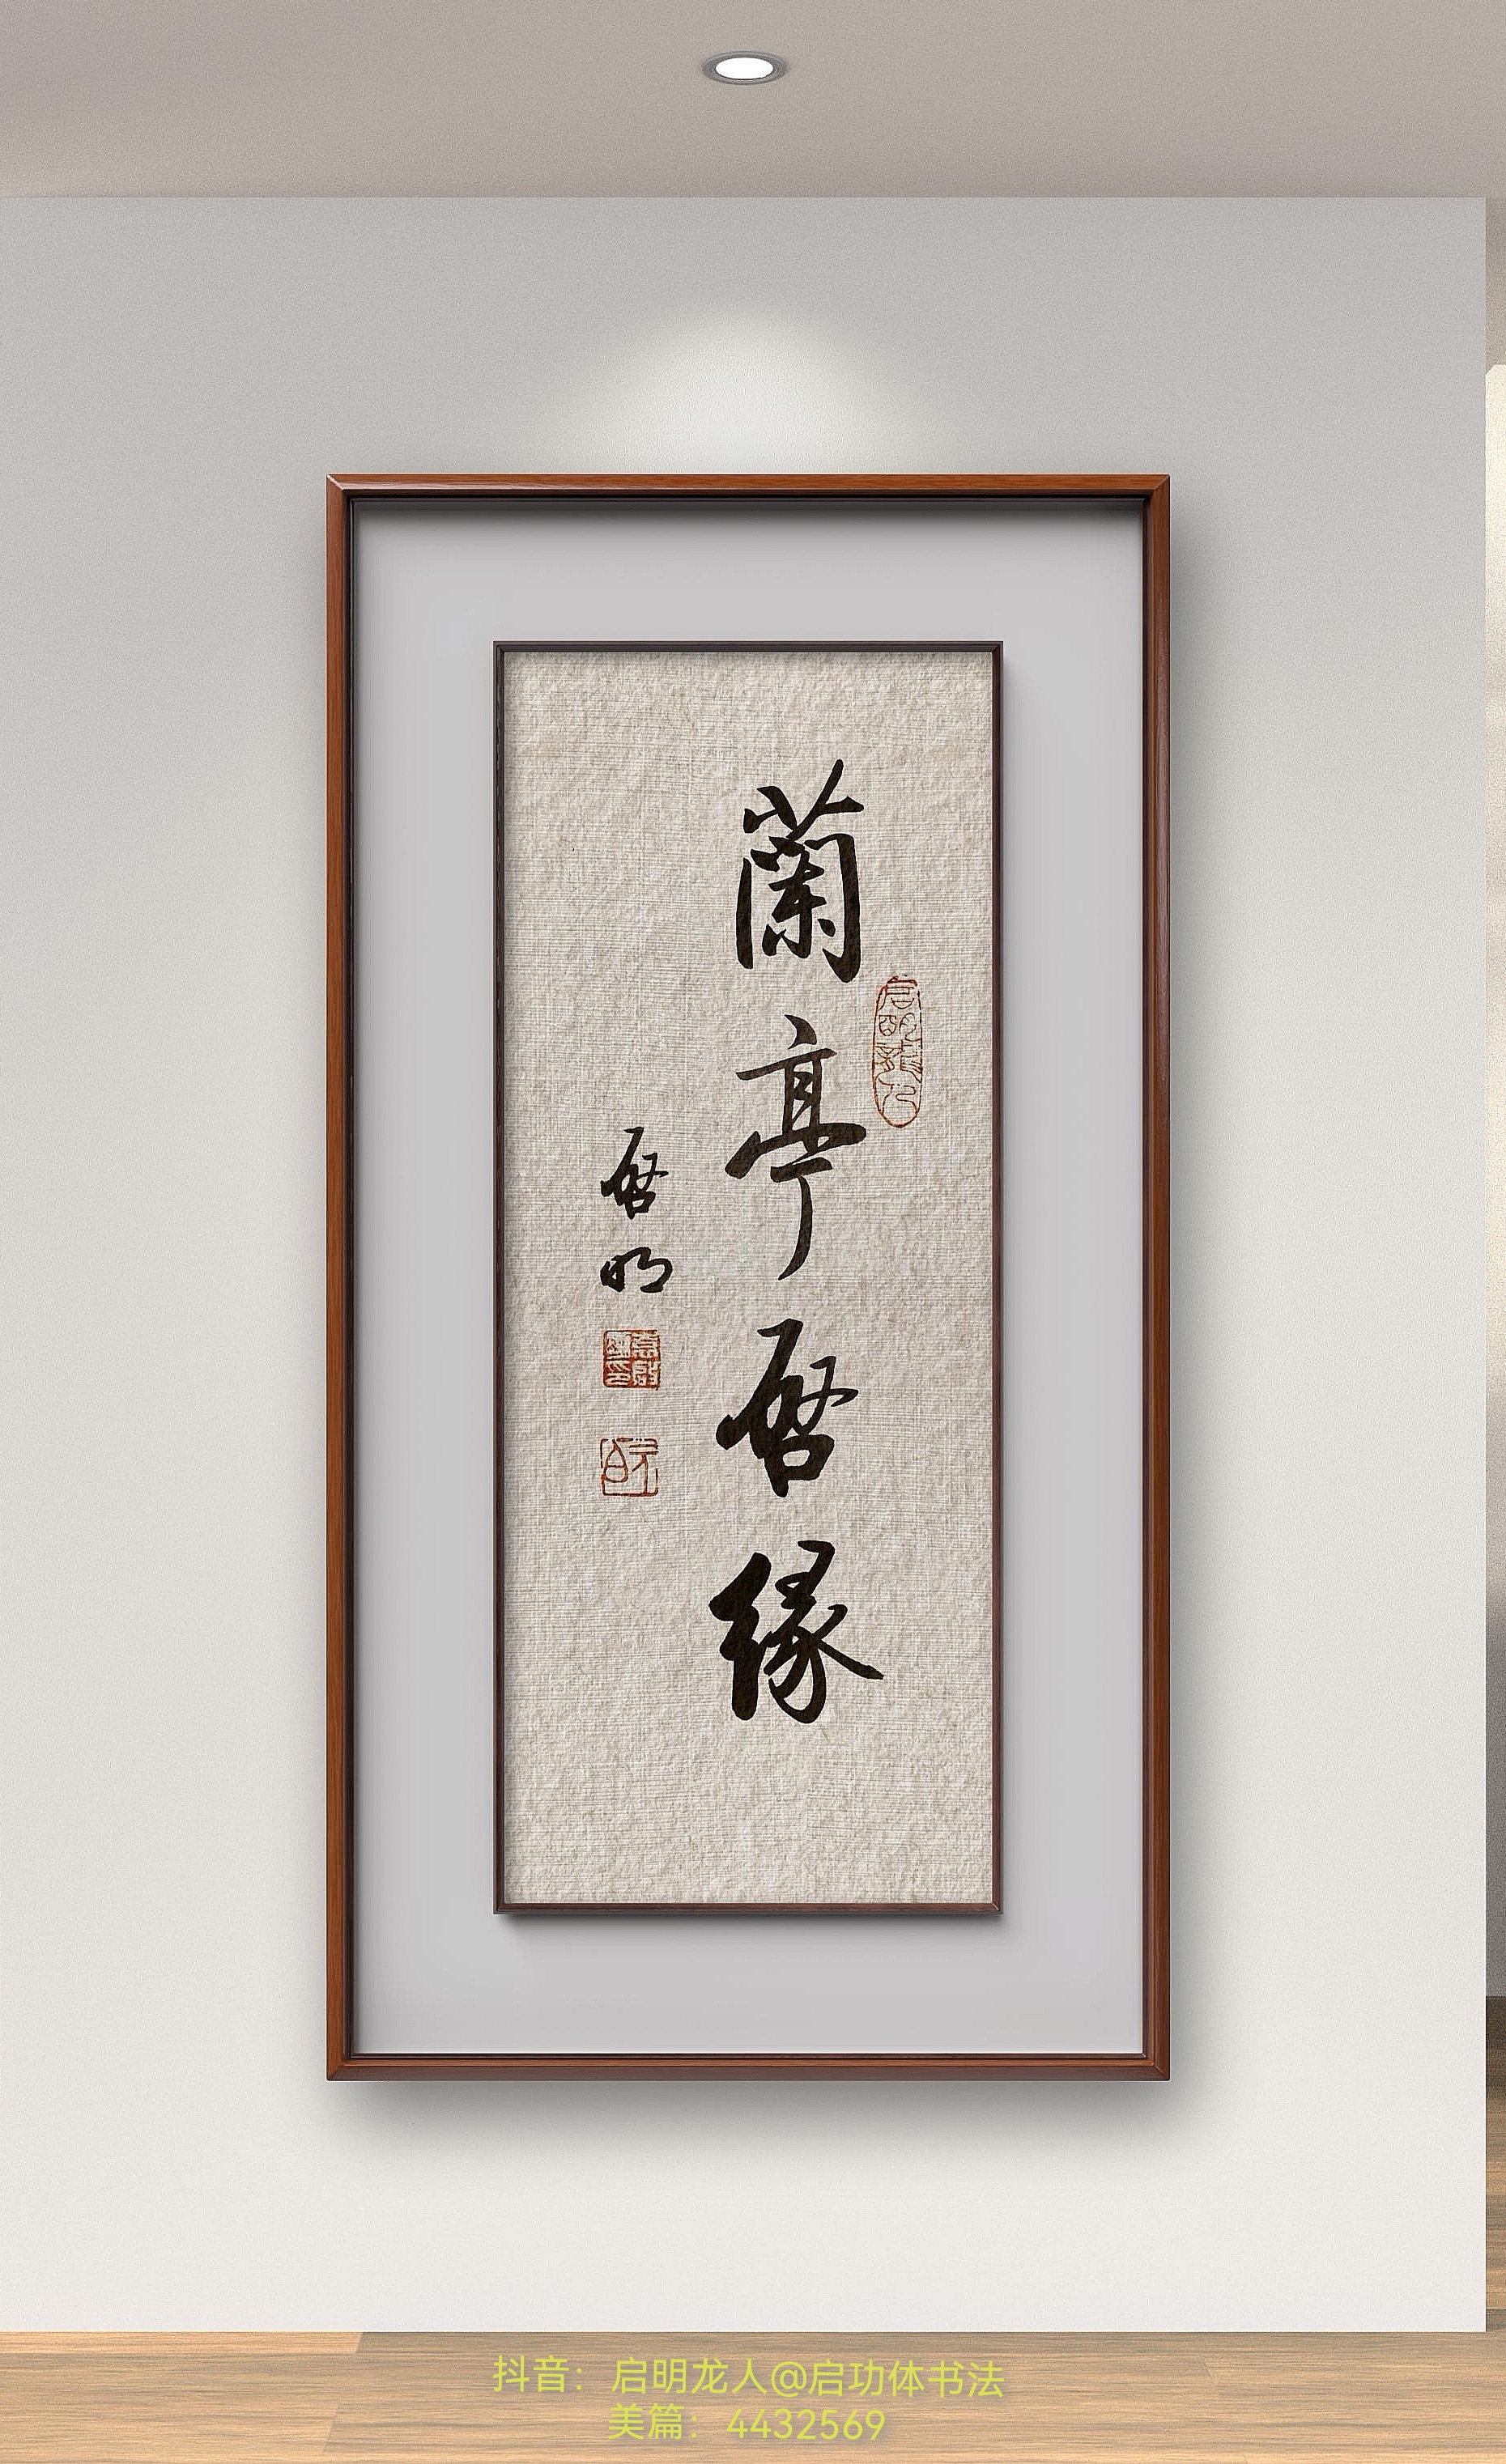 蘭亭啓緣
啓明
抖音：启明龙人@启功体书法
美篇：4432569